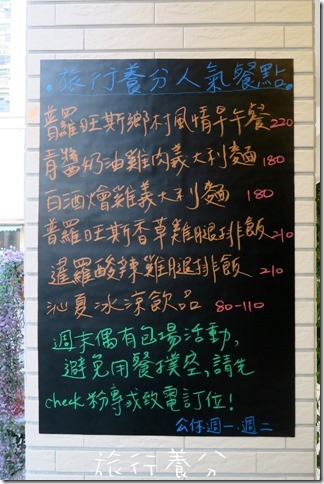 ·旅行養分人氣餐點·
普羅旺斯鄉村風情早午餐 220
青醬奶油雞肉義大利麵 180
白酒燴雞義大利麵 180
普羅旺斯香草雞腿排飯 210
暹羅酸辣雞腿排飯 210
沁夏冰涼飲品 80-110
週末偶有包場活動,
避免用餐撲空,請先
check 粉專或致電訂位!
公休週一、週二
旅行養分